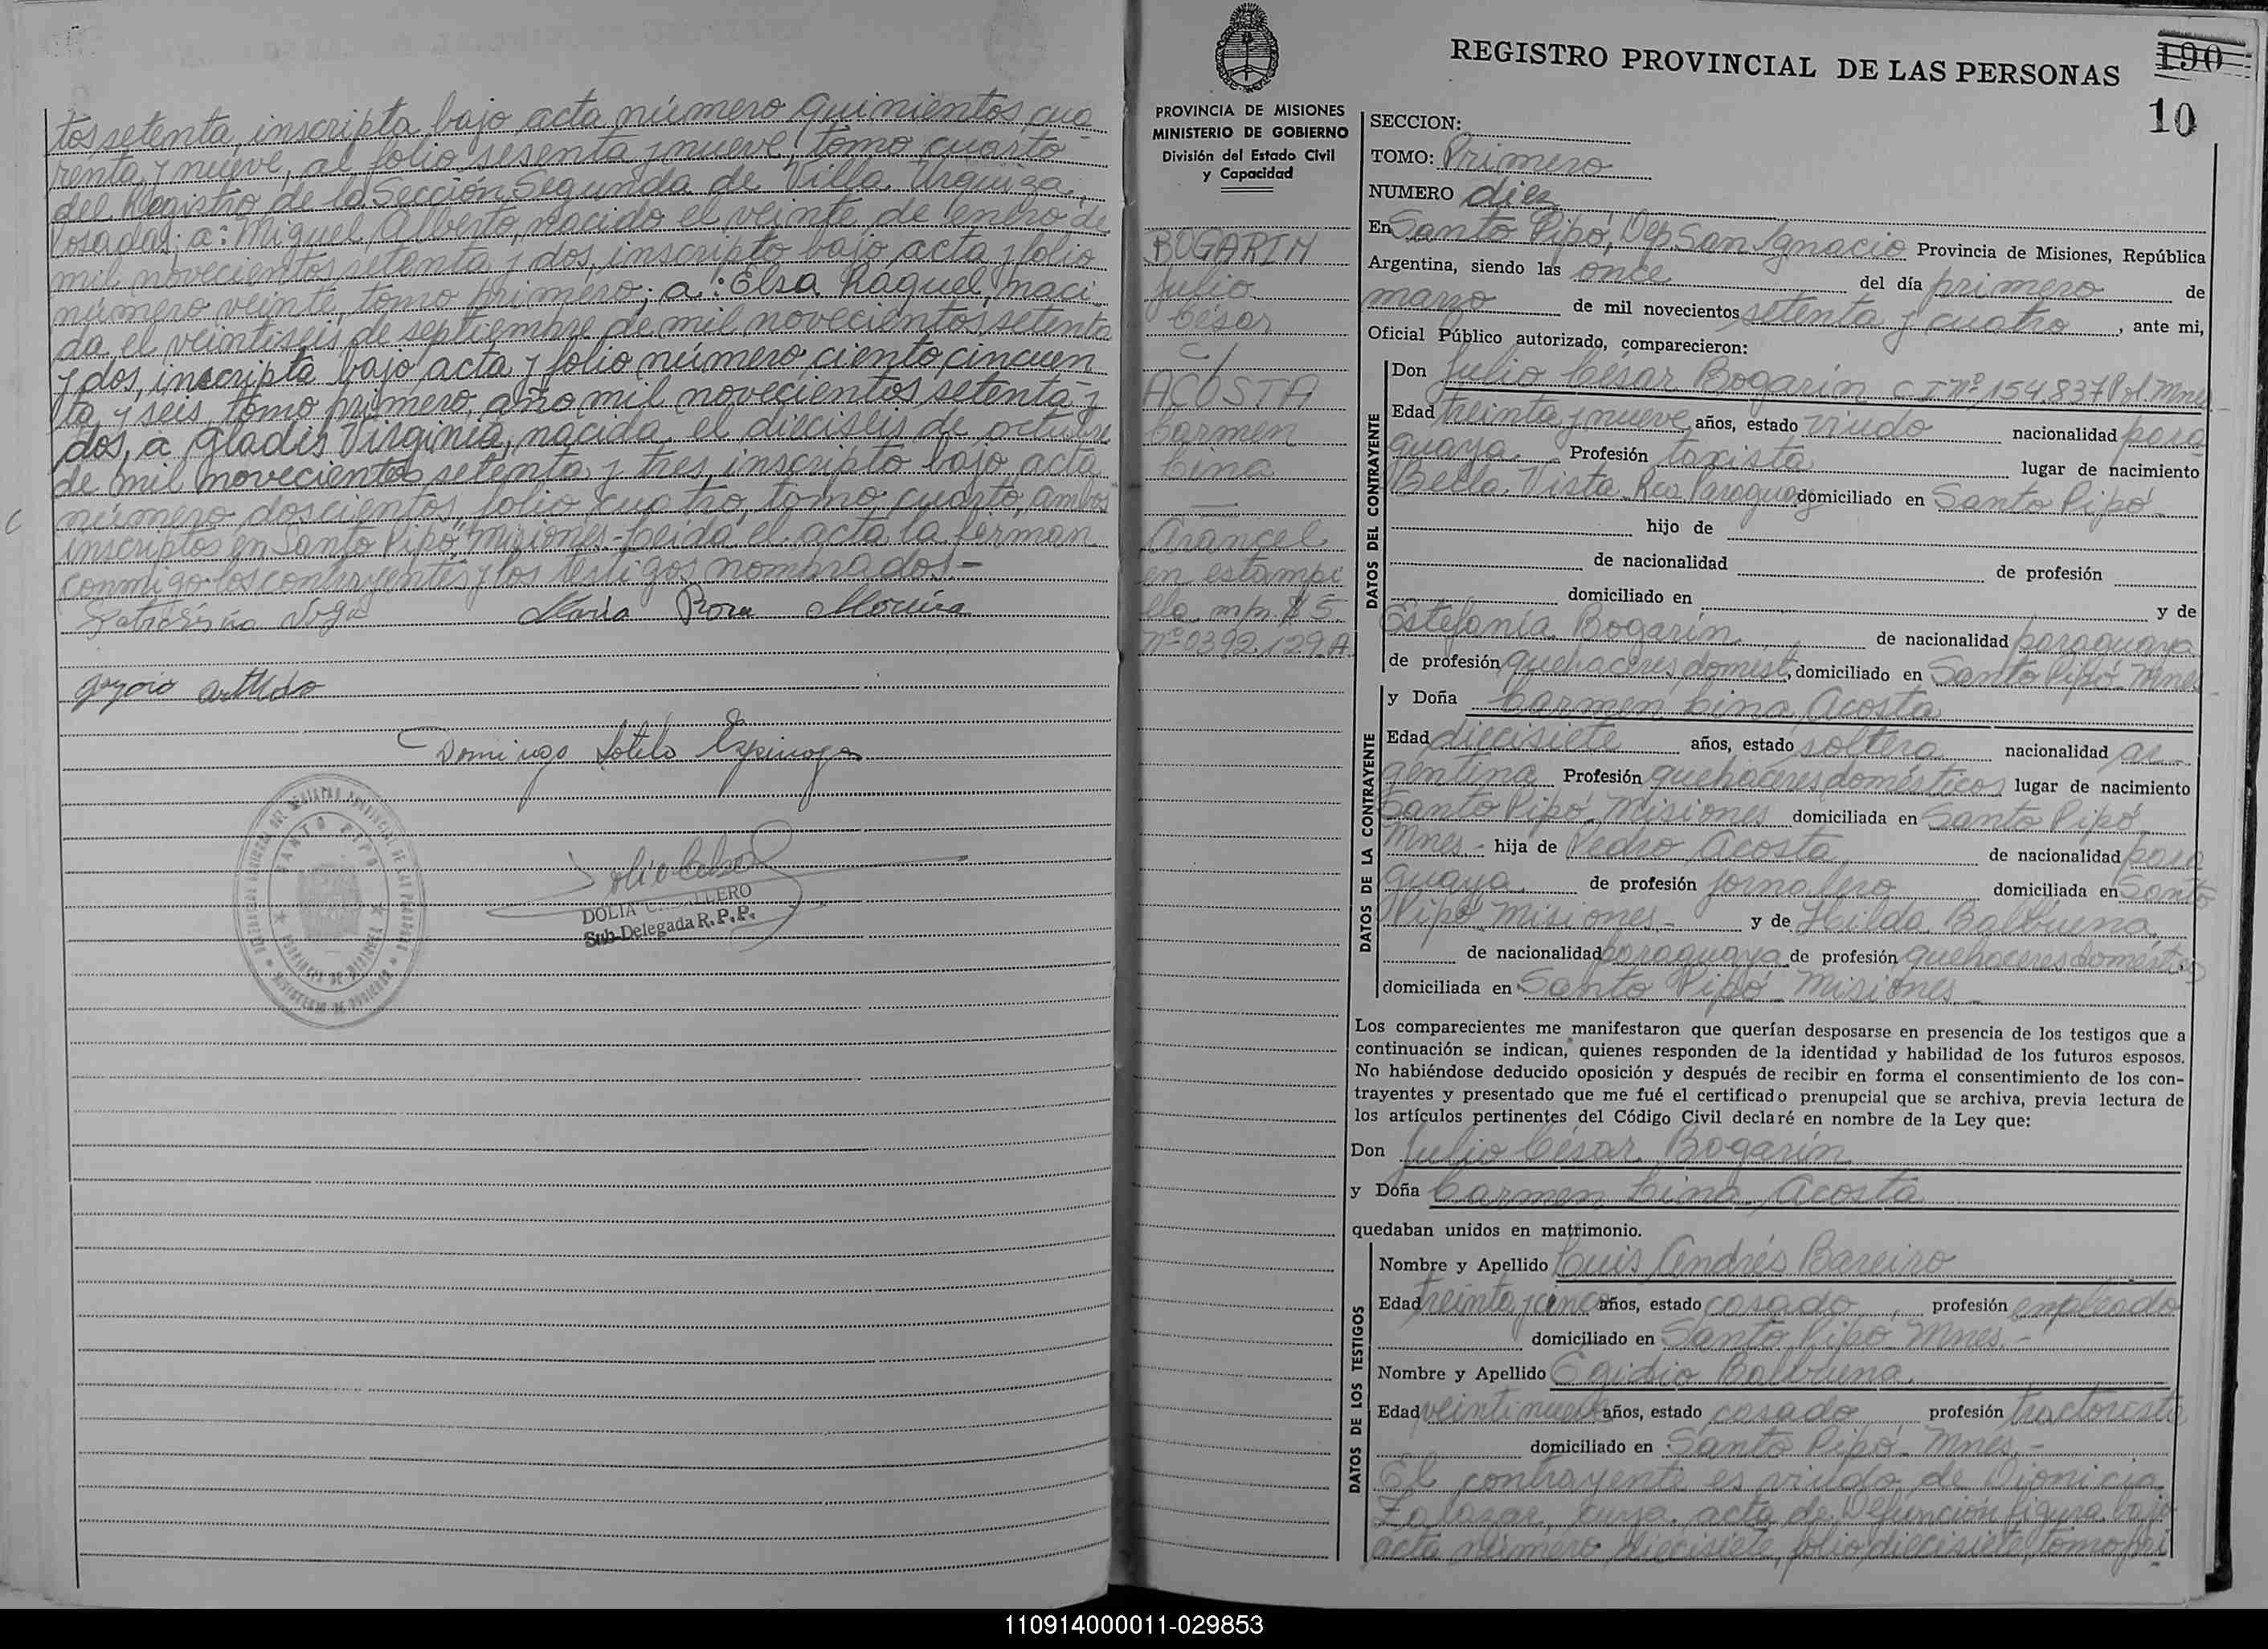 tos setenta, inscripta bajo acta número quinientos cua
renta y nueve, al folio sesenta y nueve, tomo cuarto
del Registro de la Sección Segunda de Villa Urquiza,
Posadas; a: Miguel Alberto, nacido el veinte de enero de
mil novecientos setenta y dos, inscripto bajo acta y folio
número veinte, tomo primero; a: Elsa Raquel, naci
da el veintiseis de septiembre de mil novecientos setenta
y dos, inscripta bajo acta y folio número ciento cincuen
ta y seis, tomo primero, año mil novecientos setenta y
dos, a Gladis Virginia, nacida el dieciseis de octubre
de mil novecientos setenta y tres, inscripto bajo acta
número doscientos, folio cuatro, tomo cuarto, ambos
inscriptos en Santo Pipó, Misiones.- Leida el acta la firman
conmigo los contrayentes y los testigos nombrados.-
Maria Rosa Moreira
Domingo Sotelo Espinoza
SANTO PIPO
DOLIA
Sub-Delegada R.P.P.
REGISTRO PROVINCIAL DE LAS PERSONAS
190
10
PROVINCIA DE MISIONES
MINISTERIO DE GOBIERNO
División del Estado Civil
y Capacidad
BOGARIN
Julio
César
c/
ACOSTA
Carmen
Lina
Arancel
en estampi
lla mp. $ 5.
Nº 0392.129.A.
SECCION:
TOMO: Primero
NUMERO diez
En Santo Pipó, Dep San Ignacio Provincia de Misiones, República
Argentina, siendo las once del día primero de
marzo de mil novecientos setenta y cuatro, ante mi,
Oficial Público autorizado, comparecieron:
DATOS DEL CONTRAYENTE
Don Julio César Bogarín C.I.Nº 154.837 Pol. Mnes.
Edad treinta y nueve años, estado viudo nacionalidad para
guaya Profesión taxista lugar de nacimiento
Bella Vista Rca Paraguay domiciliado en Santo Pipó
hijo de
de nacionalidad de profesión
domiciliado en y de
Estefanía Bogarín de nacionalidad paraguaya
de profesión quehaceres domest, domiciliado en Santo Pipó Mnes
DATOS DE LA CONTRAYENTE
y Doña Carmen Lina Acosta
Edad diecisiete años, estado soltera nacionalidad ar
gentina Profesión quehaceres domésticos lugar de nacimiento
Santo Pipó Misiones domiciliada en Santo Pipó
Mnes.- hija de Pedro Acosta de nacionalidad para
guaya de profesión jornalero domiciliada en Santo
Pipó Misiones.- y de Hilda Balbuena
de nacionalidad paraguaya de profesión quehaceres domésticos
domiciliada en Santo Pipó Misiones.-
Los comparecientes me manifestaron que querían desposarse en presencia de los testigos que a
continuación se indican, quienes responden de la identidad y habilidad de los futuros esposos.
No habiéndose deducido oposición y después de recibir en forma el consentimiento de los con-
trayentes y presentado que me fué el certificado prenupcial que se archiva, previa lectura de
los artículos pertinentes del Código Civil declaré en nombre de la Ley que:
Don Julio César Bogarín
y Doña Carmen Lina Acosta
quedaban unidos en matrimonio.
DATOS DE LOS TESTIGOS
Nombre y Apellido Luis Andrés Bareiro
Edad treinta y cinco años, estado casado, profesión empleado
domiciliado en Santo Pipó Mnes.-
Nombre y Apellido Egidio Balbuena
Edad veintinueve años, estado casado profesión tractorista
domiciliado en Santo Pipó Mnes.-
El contrayente es viudo de Dionicia
Zalazar, cuya acta de Defunción figura bajo
acta número diecisiete, folio diecisiete, tomo pri
110914000011-029853